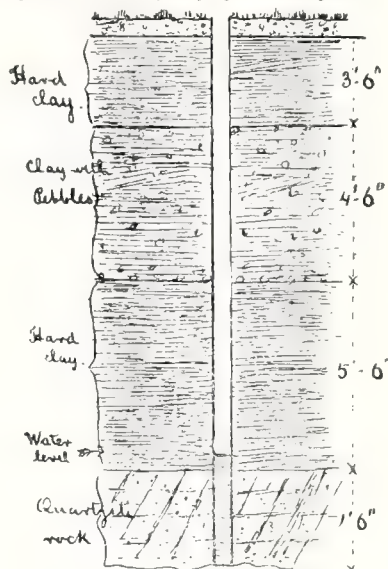 Hard
clay.
3' 6"
Clay with
Pebbles
4' 6"
Hard
clay.
5' - 6"
Water
level
Quartzite
rock
1' 6"